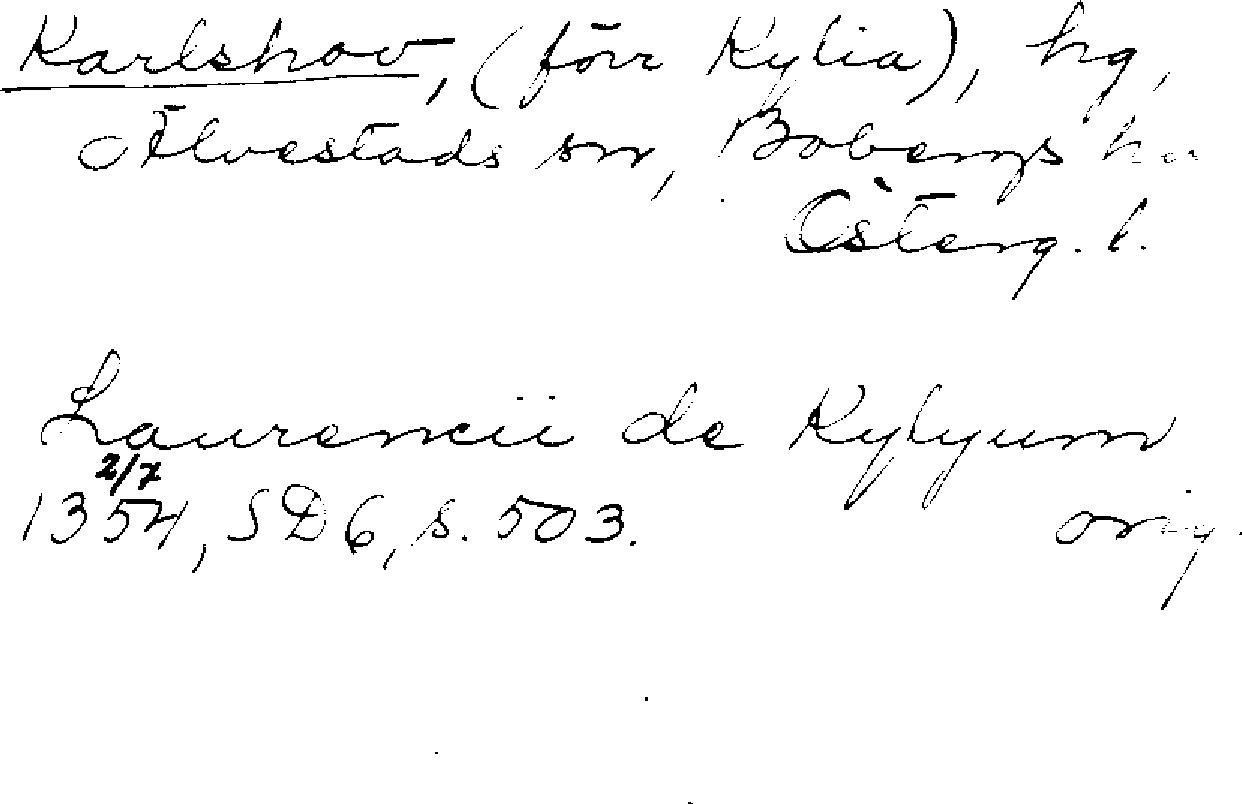 Karlshov, (förr Kylia), hg,
Älvestads sn, Bobergs hd
Österg. l.
Laurencii de Kylyum
2/7
1354, SD6, s. 503. orig.